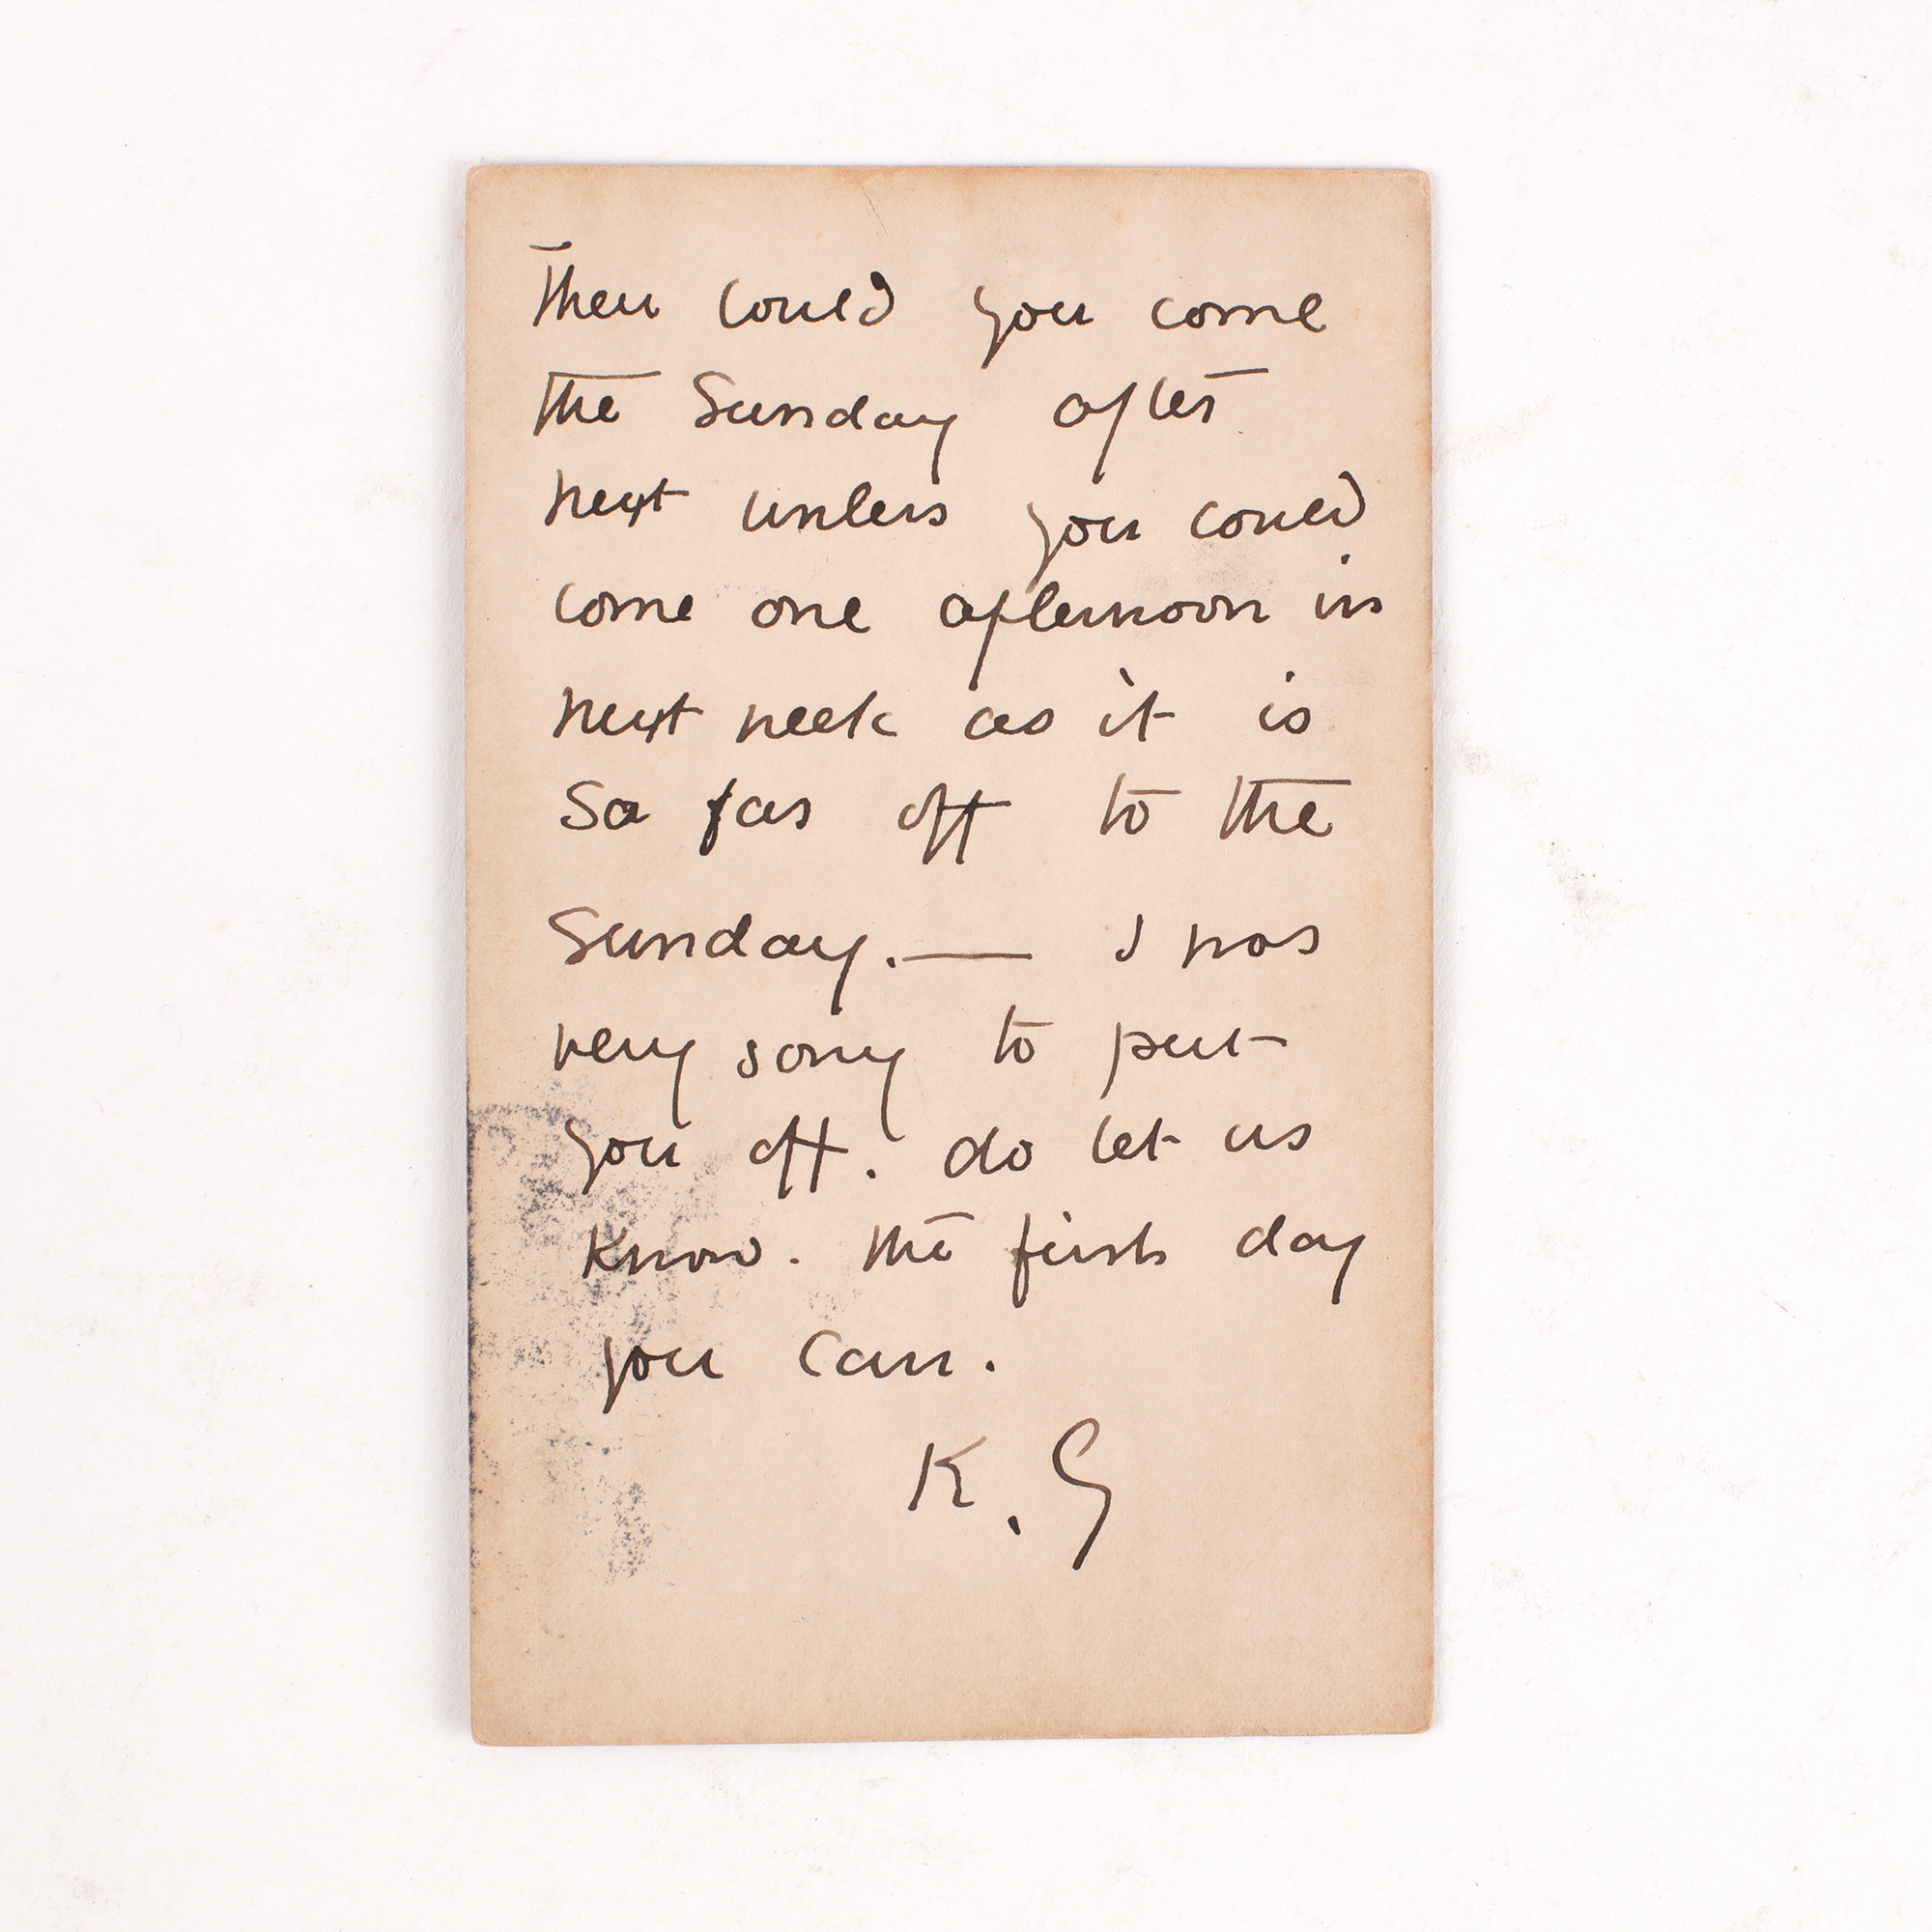 Then could you come
the Sunday after
next unless you could
come one afternoon in
next week as it is
so far off to the
Sunday. — I was
very sorry to put
you off. do let us
know. the first day
you can.
K. G